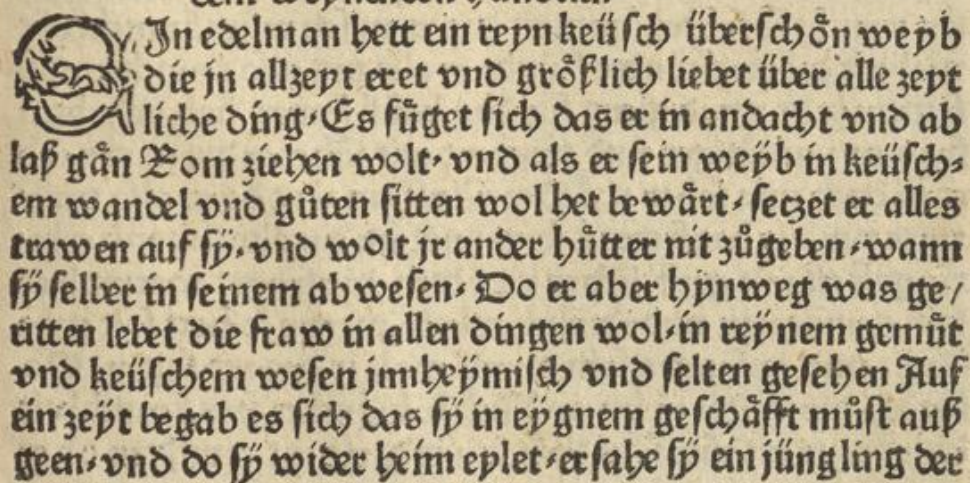 EIn edelman hett ein reyn keüsch überschön weyb
die jn allzeyt eret vnd größlich liebet über alle zeyt
liche ding. Es füget sich das er in andacht vnd ab
laß gån Rom ziehen wolt. vnd als er sein weÿb in keüsch⸗
em wandel vnd gůten sitten wol het bewårt. seczet er alles
trawen auf sÿ. vnd wolt jr ander hůtter nit zůgeben. wann
sÿ selber in seinem abwesen. Do er aber hynweg was ge/
ritten lebet die fraw in allen dingen wol. in reÿnem gemůt
vnd keüschem wesen jnnheÿmisch vnd selten gesehen Auf
ein zeÿt begab es sich das sÿ in eÿgnem geschåfft můst auß
geen. vnd do sÿ wider heim eylet. ersahe sÿ ein jüngling der